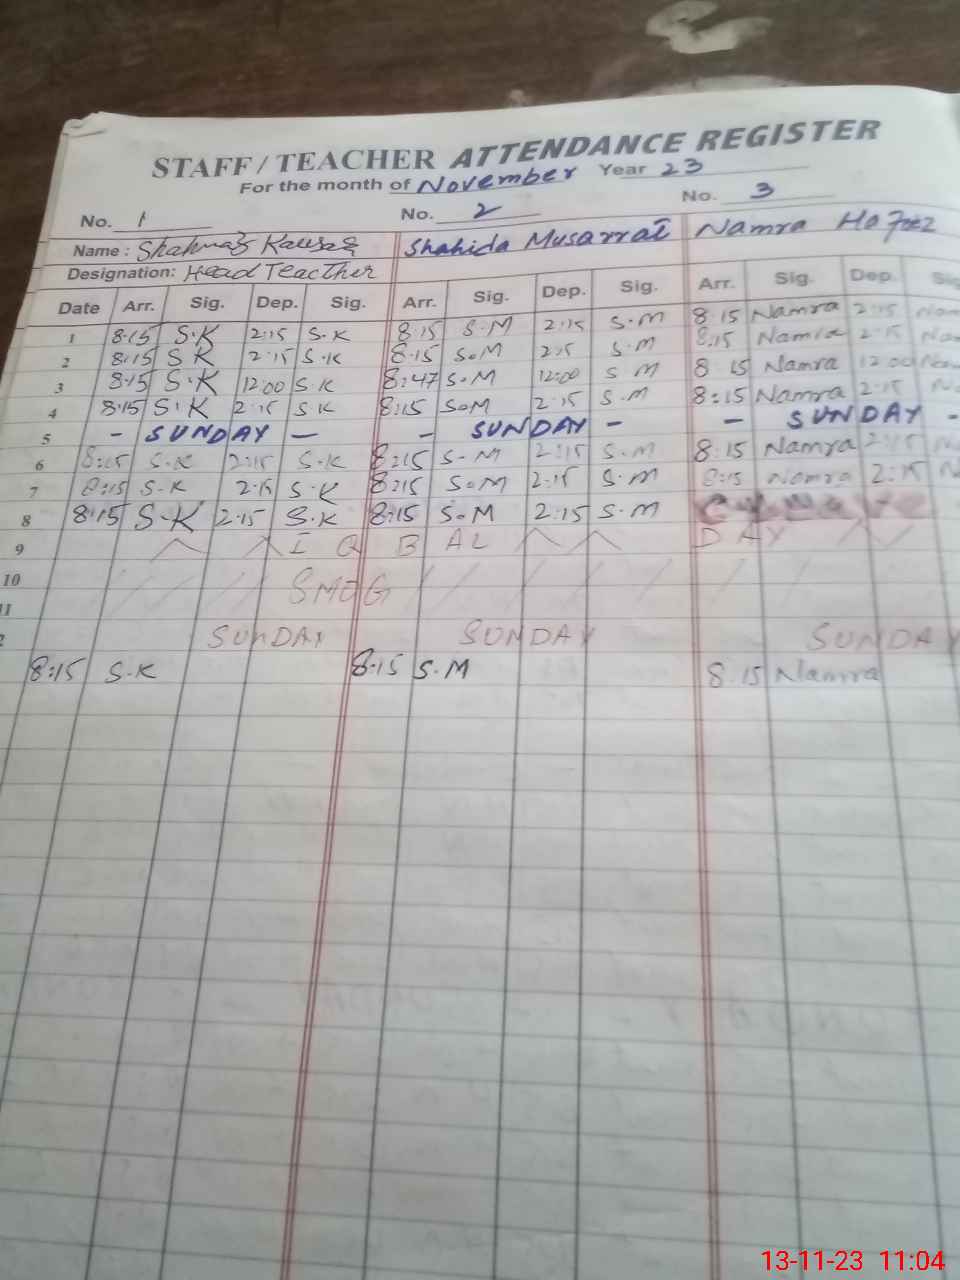 STAFF / TEACHER ATTENDANCE REGISTER
For the month of November Year 23
No. 1 No. 2 No. 3
Name : Shahnaz Kausar Shahida Musarrat Namra Hafeez
Designation: Head Teacther
Date Arr. Sig. Dep. Sig. Arr. Sig. Dep. Sig. Arr. Sig. Dep. Sig
1 8:15 S.K 2:15 S.K 8:15 S.M 2:15 S.M 8:15 Namra 2:15 Nam
2 8:15 S K 2:15 S.K 8:15 S.M 2:15 S.M 8:15 Namra 2:15 Nam
3 8:15 S.K 12:00 S K 8:47 S.M 12:00 S M 8:15 Namra 12:00
4 8:15 S.K 2:15 S K 8:15 S.M 2:15 S.M 8:15 Namra 2:15
5 - SUNDAY - - SUNDAY - - SUNDAY -
6 8:15 S.K 2:15 S.K 8:15 S.M 2:15 S.M 8:15 Namra 2:15
7 8:15 S.K 2:15 S.K 8:15 S.M 2:15 S.M 8:15 Namra 2:15 N
8 8:15 S.K 2:15 S.K 8:15 S.M 2:15 S.M
9 IQBAL DAY
10 SMOG
11
2 SUNDAY SUNDAY SUNDAY
8:15 S.K 8:15 S.M 8:15 Namra
13-11-23 11:04